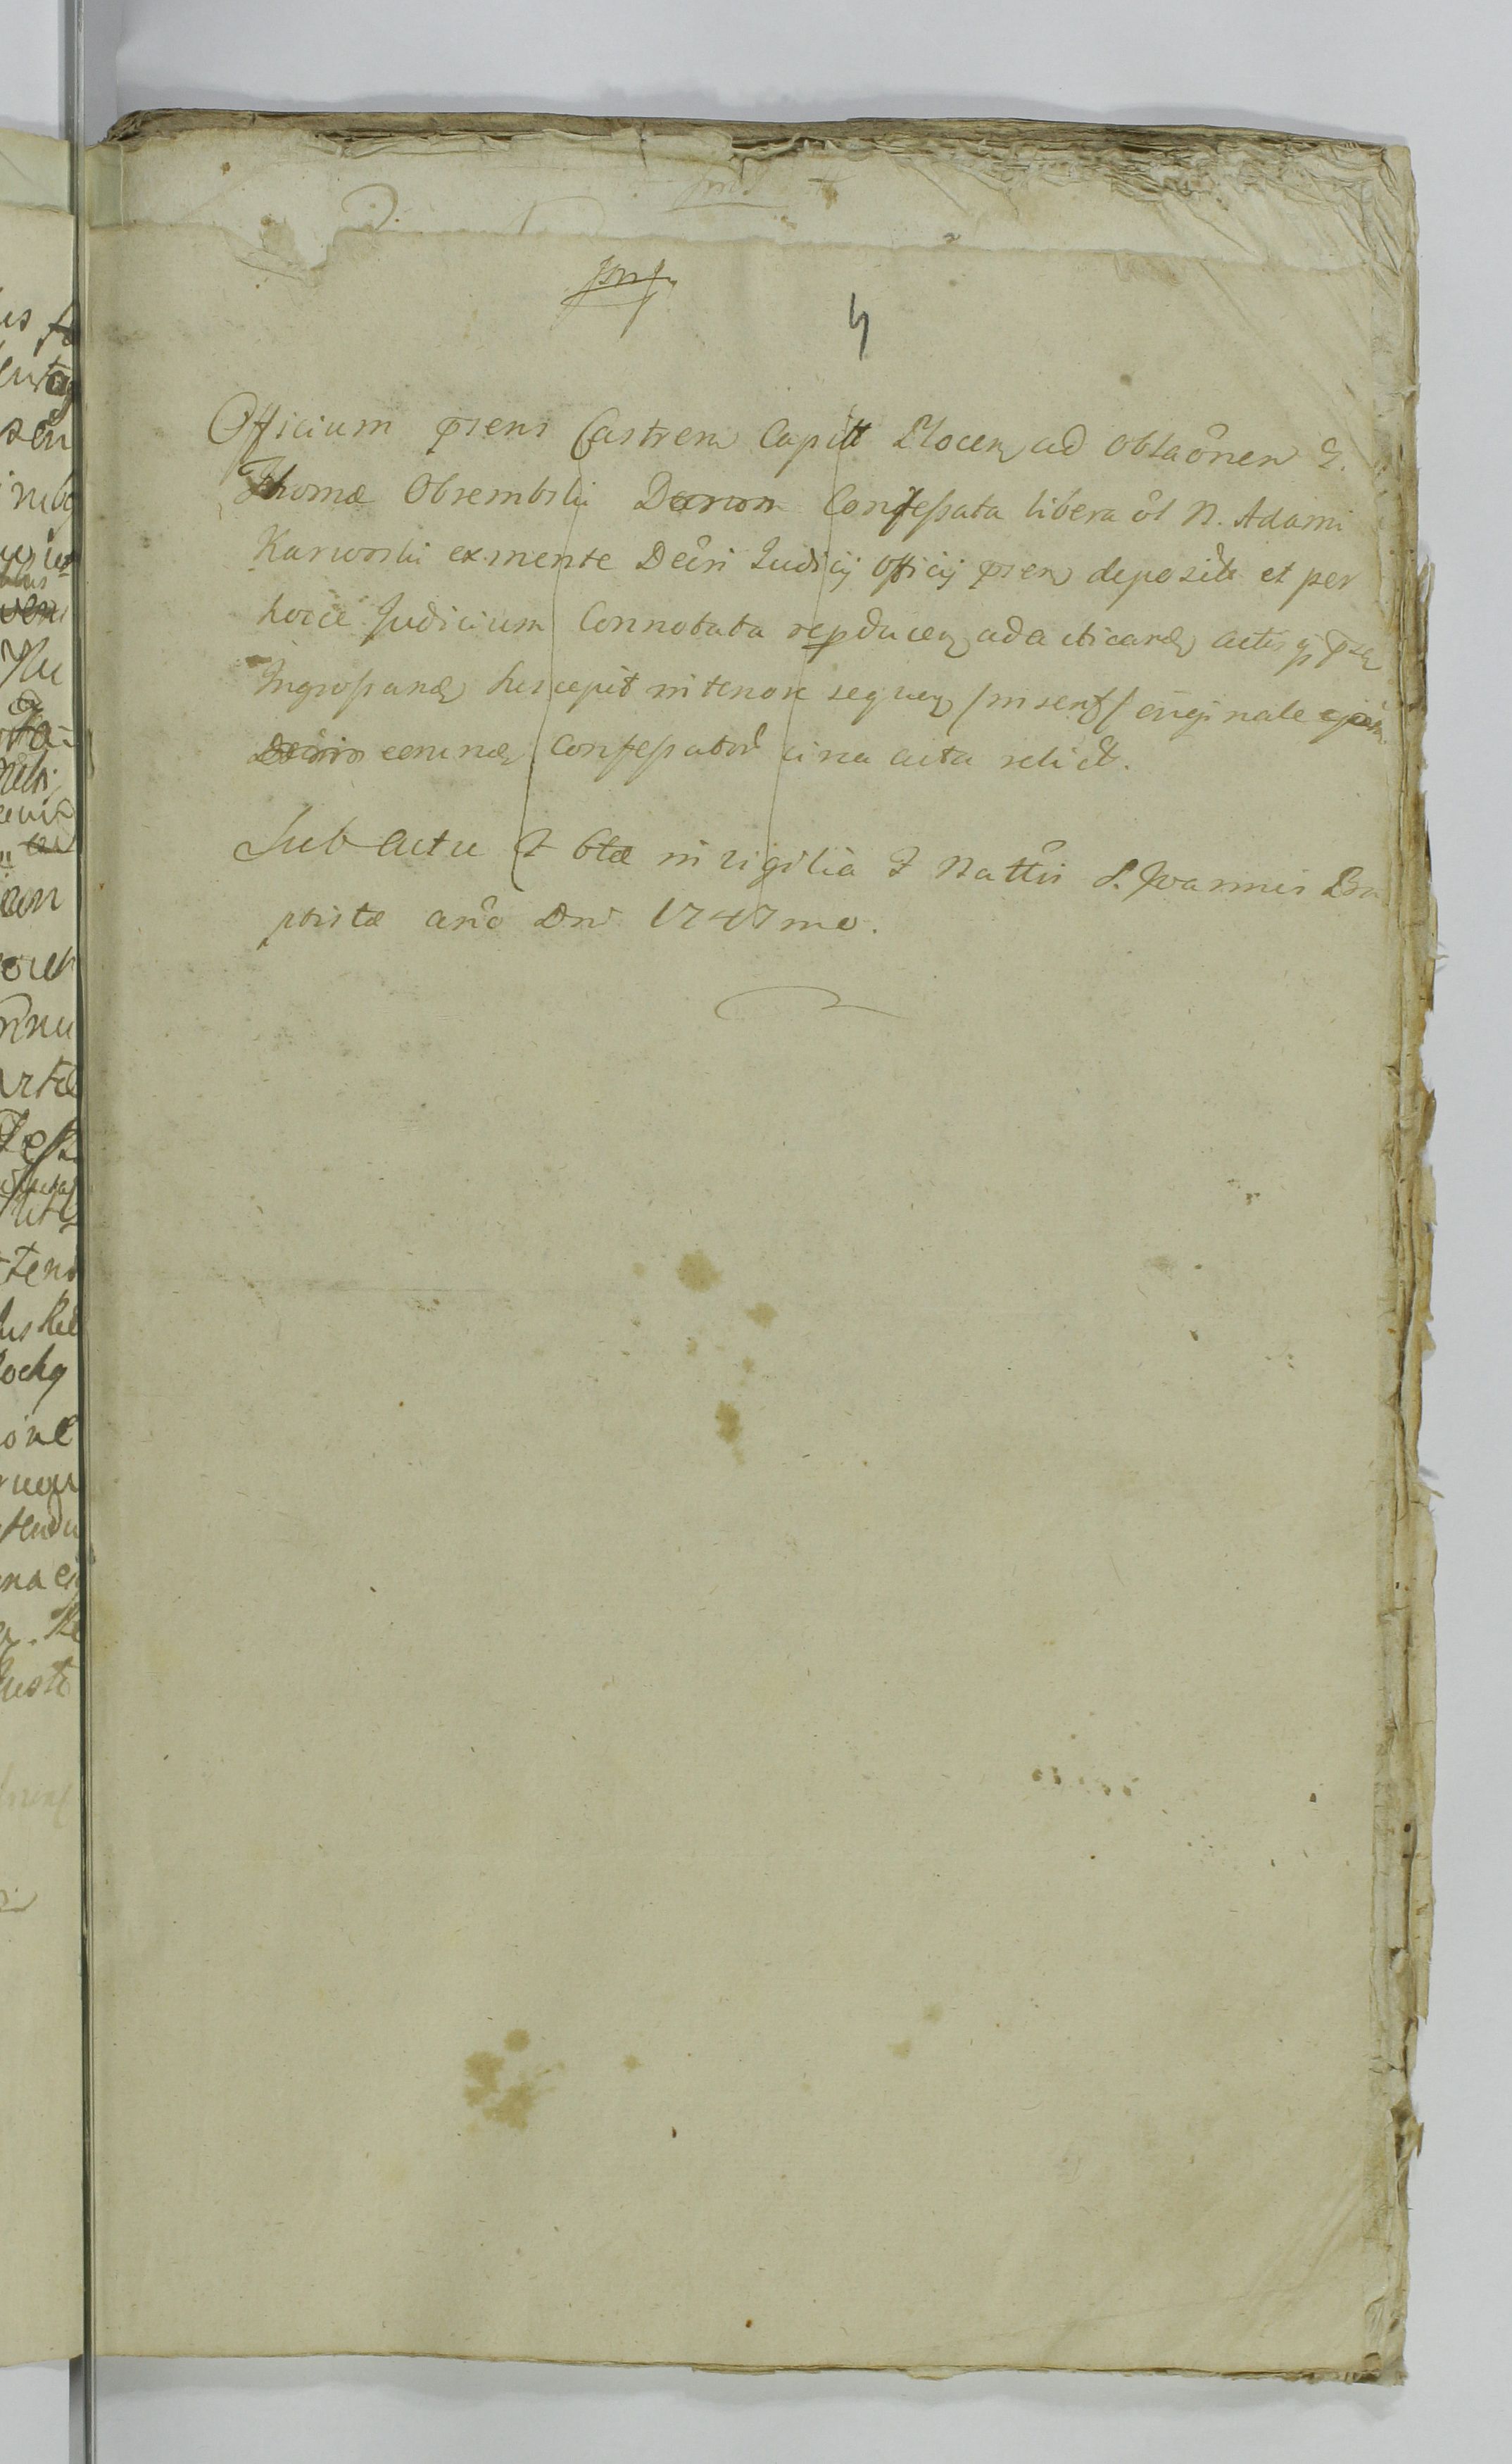 4
Officium prens Castren Capitt Plocen ad oblaônen G.
Thomæ Obrembski Confessata libera ôl N. Adami
Karwoski ex mente Decri Judicij Officij pren deposita et per
hocce Judicium Connotata repducen ad acticand actis q
Ingrossand suscepit in tenore sequen /inserf/ originale
continen Confessator circa acta relict.
Sub Actu F 6tæ in vigilia F Nattis S. Joannis Ba
ptistæ anô Dni 1747mo.